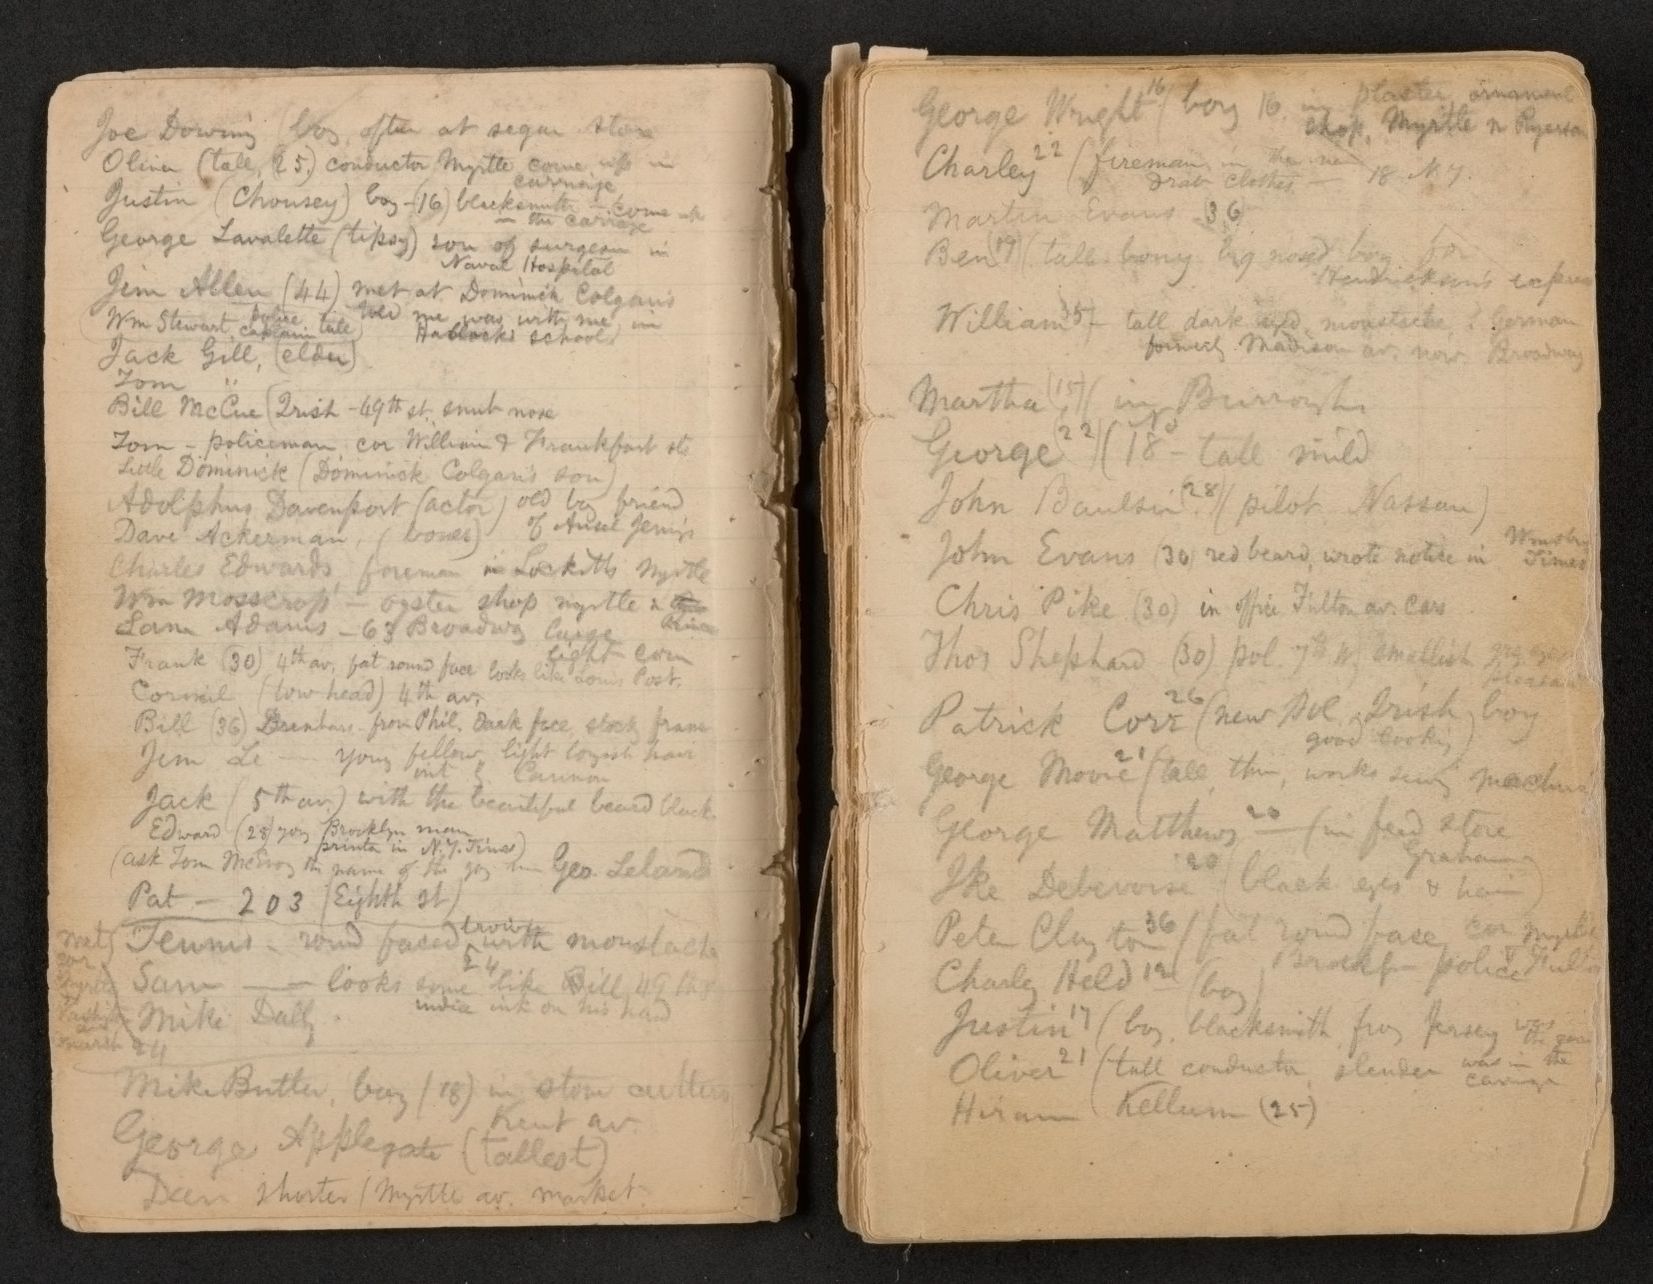 Joe Downing (boy, often at segar store
Oliver (tall, 25,) conductor Myrtle come up in
carraige
Justin (Chousey) boy - (16) blacksmith - come up
- the carriage
George Lavalette (tipsy) son of surgeon in
Naval Hospital
Jim Allen (44) met at Dominick Colgan's
told me was with me in
Hablocks school
Wm Stewart, police captain tall)
Jack Gill, (elder)
Tom "
Bill McCue (Irish - 49th st. snub nose
Tom - policeman cor William & Frankfort sts
Little Dominick (Dominick Colgan's son)
Adolphus Davenport (actor) old boy friend
of Ansel Jenngs
Dave Ackerman, (bones)
Charles Edwards, foreman in Lockitts Myrtle
Wm Mosscrop - oyster shop myrtle n
Prince
Sam Adams - 63 Broadway large
light com
Frank (30) 4th av, fat round face looks like Louis Post.
Corneil (tow head) 4th av.
Bill (36) from Phil. Dark face, stocky frame
Jim Le — young fellow, light longish hair
Cannon
Jack (5th av) with the beautiful beard black
Edward (28) yng Brooklyn man
printer in N.Y. Times)
(ask Tom McEvoy the name of the yng Geo. Leland
Pat - 203 (Eighth st)
Tennis - round faced with moustache
Sam — looks some like Bill 49th st
24 india ink on his hand
Mike Dally.
met cor Myrtle
March 24
Mike Butler, boy (18) in stone cutters
Kent av.
George Applegate (tallest)
shorter (Myrtle av. market
George Wright 16 (boy 16 in plaster ornament
shop, Myrtle n Ryerson
Charley 22 (fireman, in the new
drab clothes — 18 N Y.
Martin Evans (36)
Ben (19) (tall bony big nosed boy for
Hendrickson's express
William 35 - tall dark eyed, moustache, ? German
formerly Madison av. now Broadway
Martha (15) (in Burroughs
George (22) (18 - tall mild
John Baulsir (28) (pilot Nassau)
John Evans (30) red beard, wrote notice in Wmsbrg
Times
Chris Pike (30) in office Fulton av. cars
Thos Shephard (30) pol 7th W, smallish gry eyes
pleasant
Patrick Corr 26 (new Pol, Irish boy
good looking)
George Moore 21 (tall, thin, works sewing machine
George Matthews 20 — (in feed store
Graham
Ike Debevoise 20 (black eyes & hair)
Peter Clayton 36 (fat round face, cor Myrtle
police & Fulton
Charley Held 19 — (boy)
Justin 17 (boy, blacksmith, from Jersey
Oliver 21 (tall conductor, slender was in the
carriage
Hiram Kellum (25)